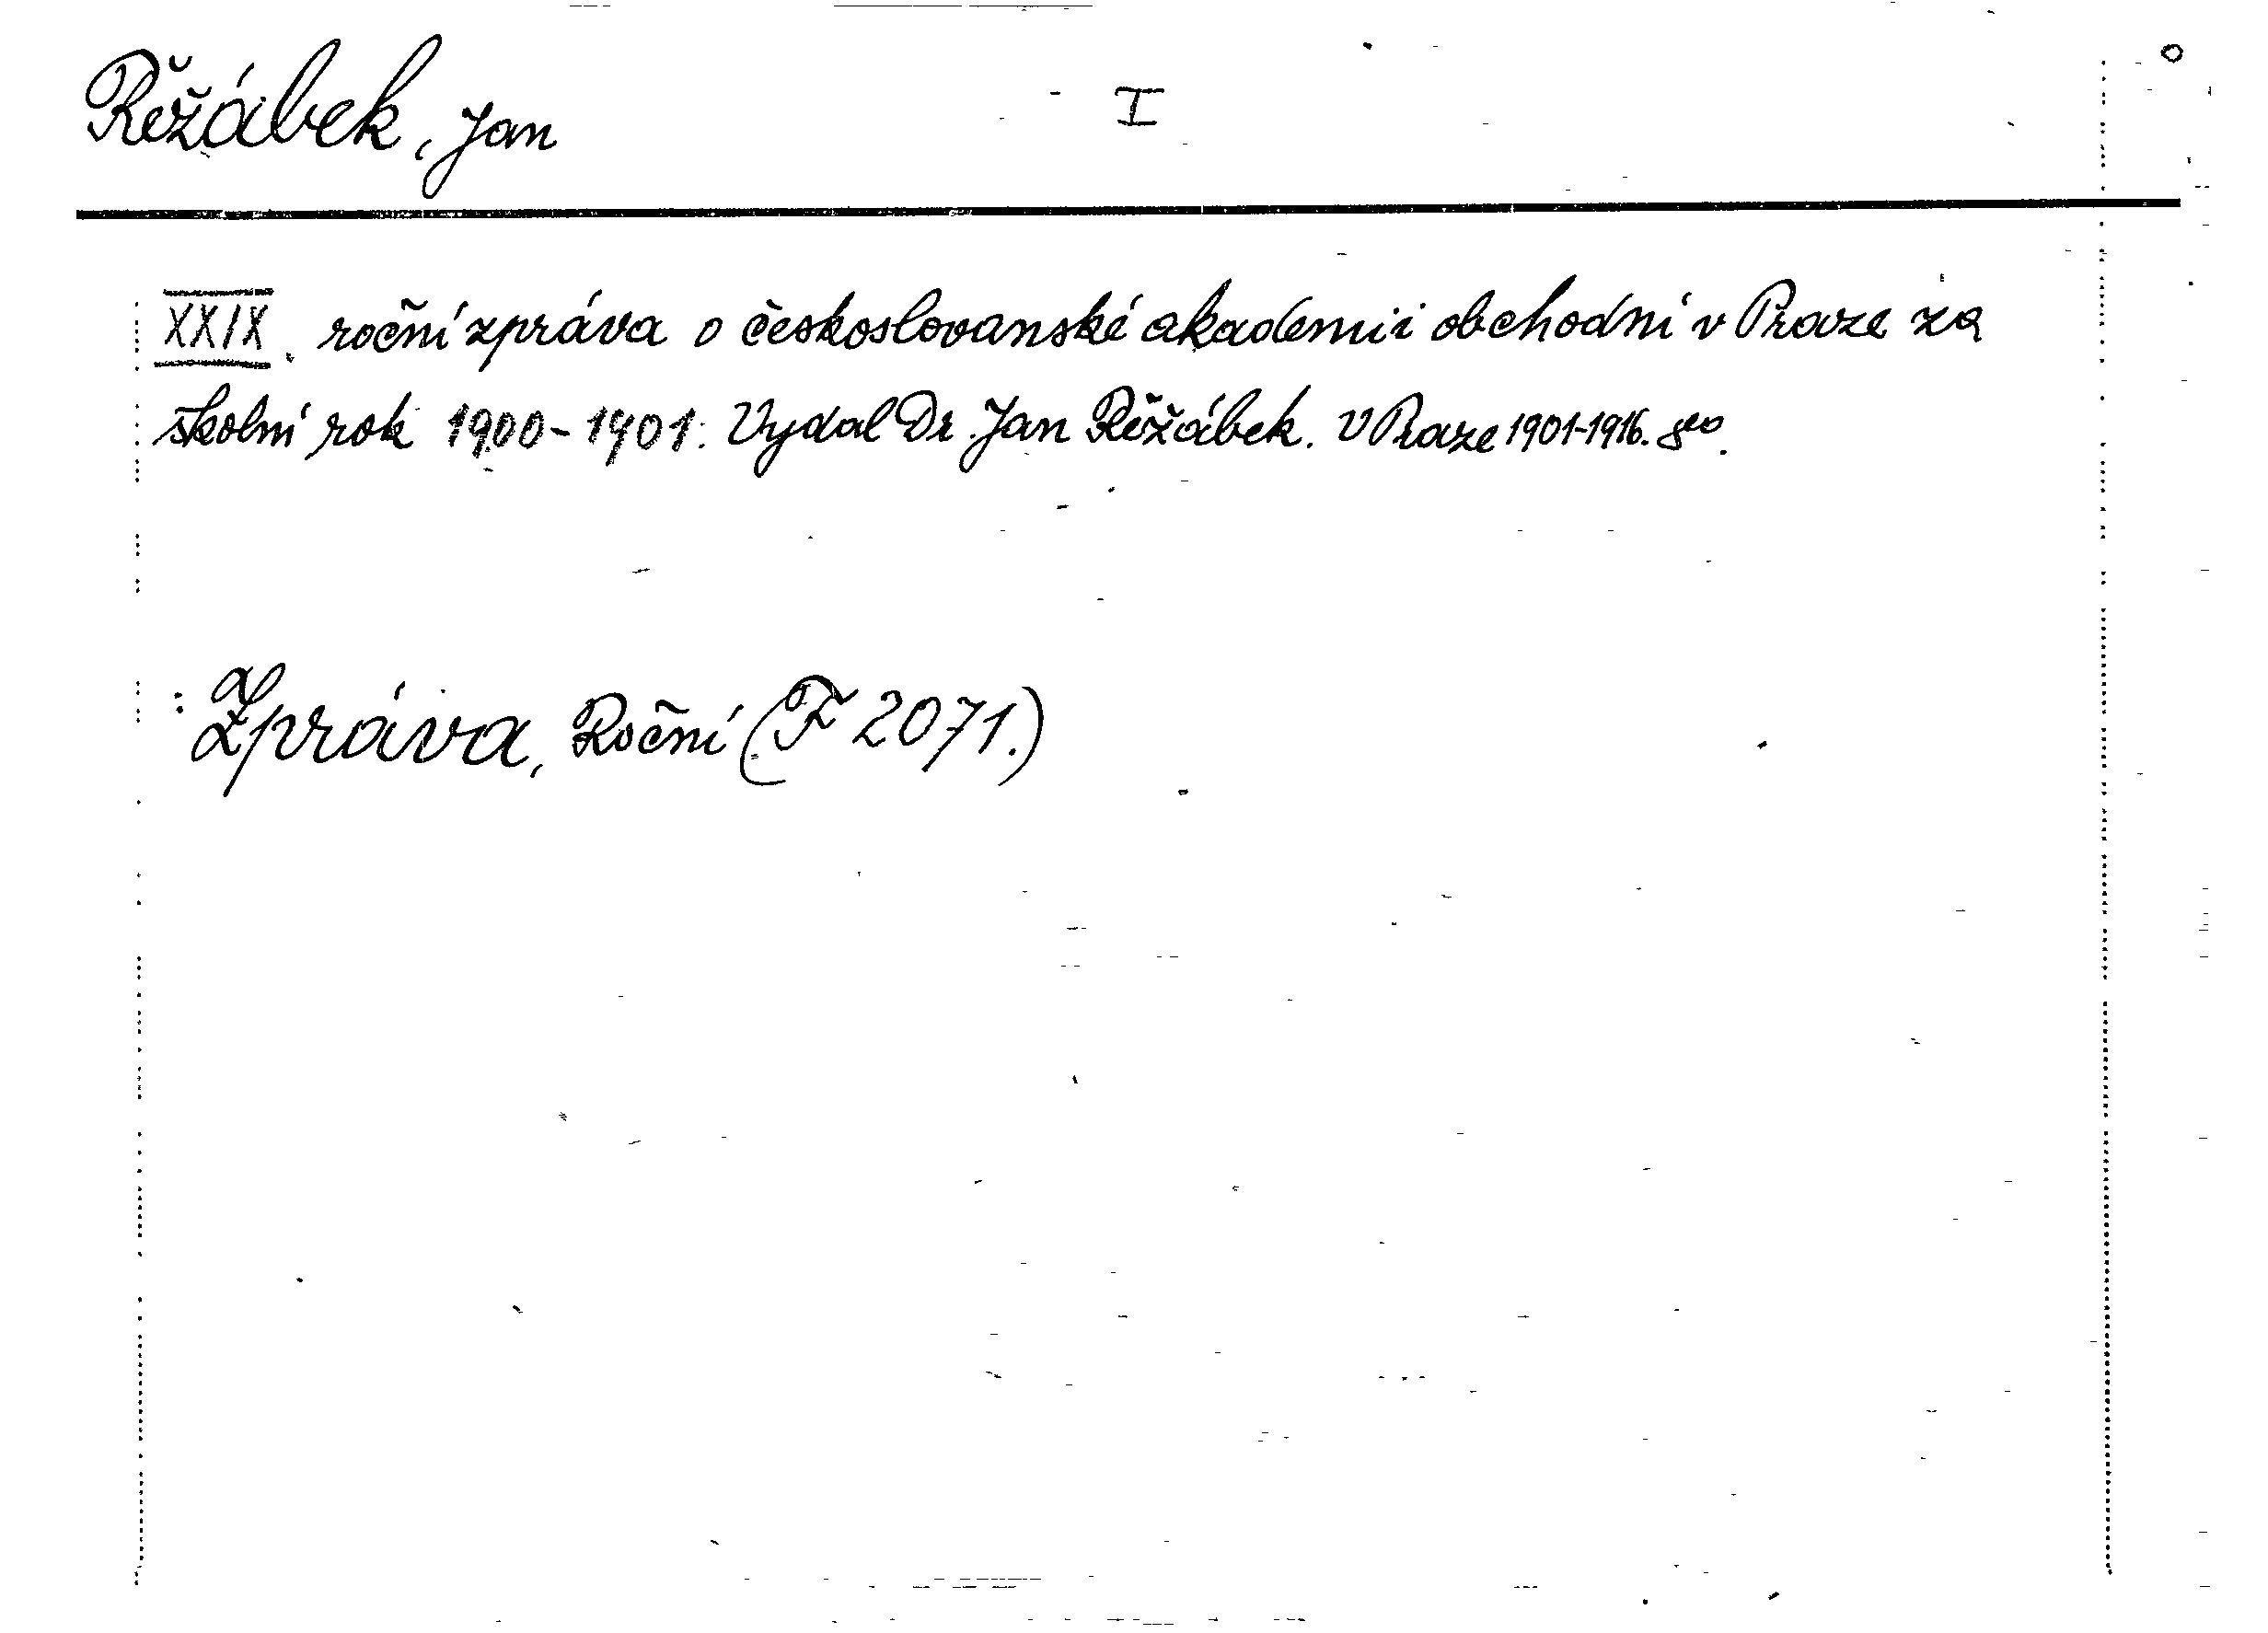 Řežábek, Jan I
XXIX. roční zpráva o českoslovanské akademii obchodní v Praze za
školní rok 1900-1901. Vydal Dr. Jan Řežábek. V Praze 1901-1916. 8vo.
: Zpráva, Roční (F 2071.)